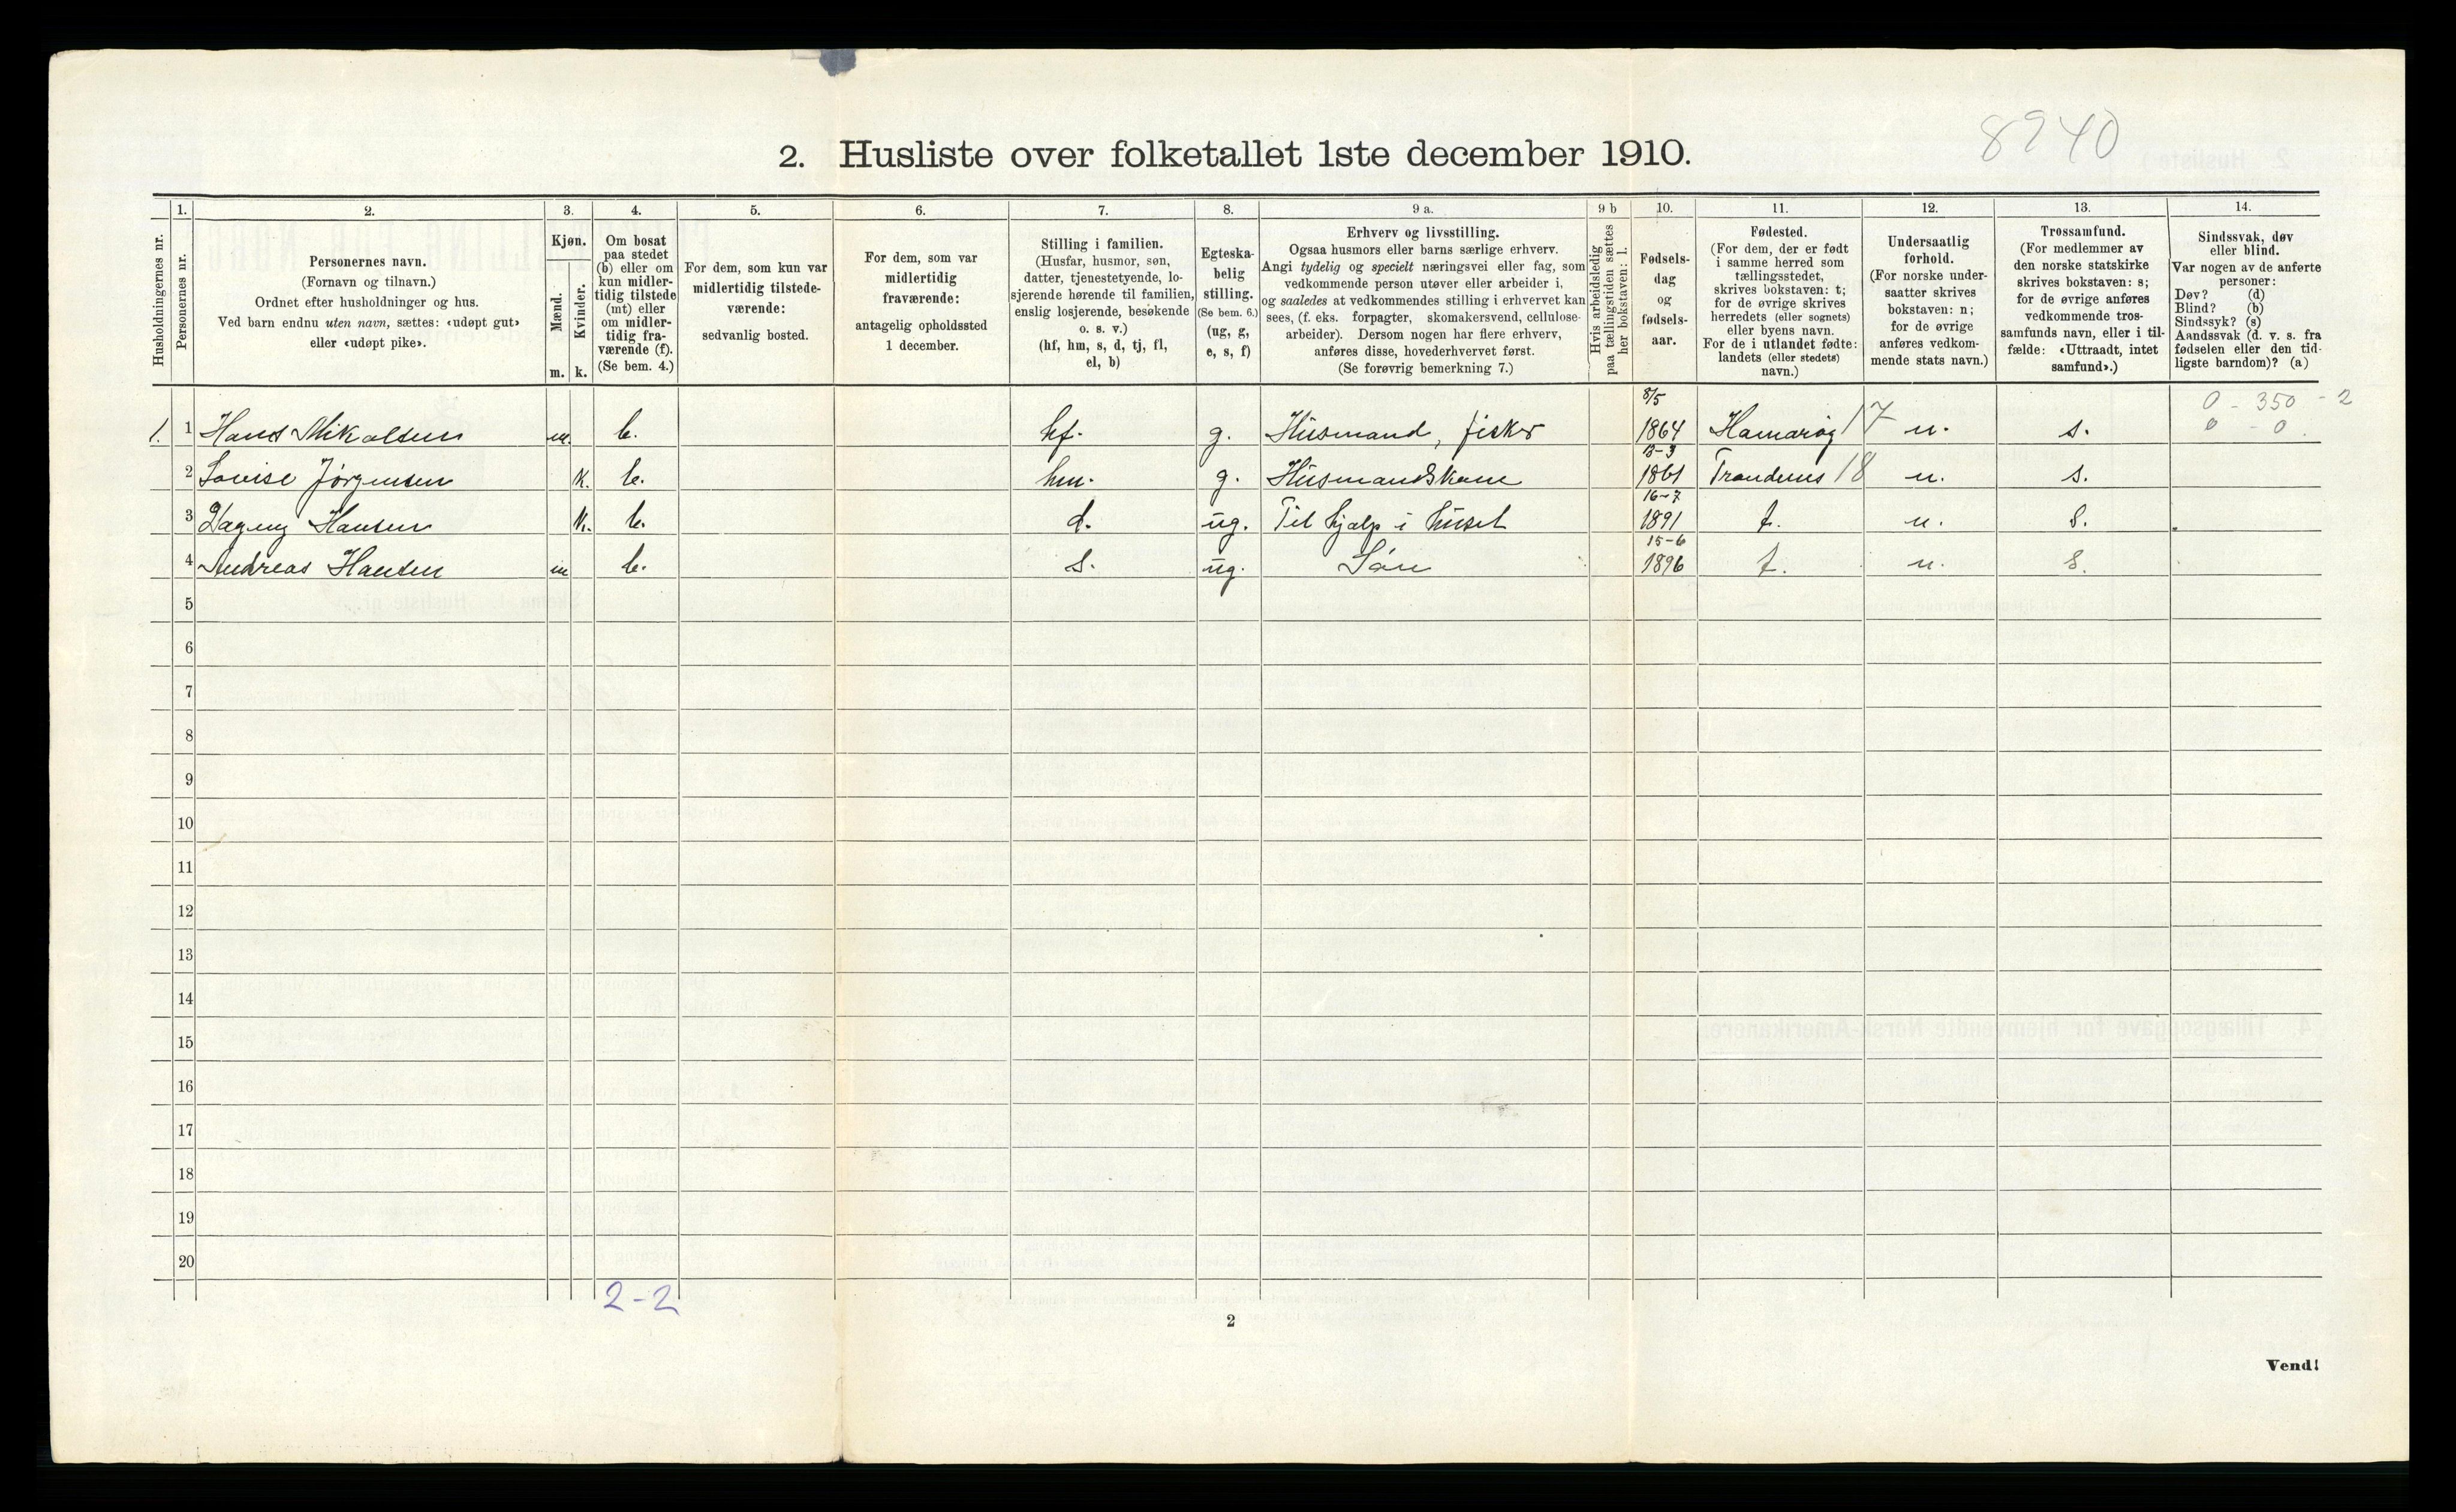 8940
2. Husliste over folketallet 1ste december 1910.
Husholdningernes nr.
1.
Personernes nr.
2.
Personernes navn.
(Fornavn og tilnavn.)
Ordnet efter husholdninger og hus.
Ved barn endnu uten navn, sættes: «udøpt gut»
eller «udøpt pike».
3.
Kjøn.
Mænd.
Kvinder.
m. k.
4.
Om bosat
paa stedet
(b) eller om
kun midler-
tidig tilstede
(mt) eller
om midler-
tidig fra-
værende (f).
(Se bem. 4.)
5.
For dem, som kun var
midlertidig tilstede-
værende:
sedvanlig bosted.
6.
For dem, som var
midlertidig
fraværende:
antagelig opholdssted
1 december.
7.
Stilling i familien.
(Husfar, husmor, søn,
datter, tjenestetyende, lo-
sjerende hørende til familien,
enslig losjerende, besøkende
o. s. v.)
(hf, hm, s, d, tj, fl,
el, b)
8.
Egteska-
belig
stilling.
(Se bem. 6.)
(ug, g,
e, s, f)
9 a.
Erhverv og livsstilling.
Ogsaa husmors eller barns særlige erhverv.
Angi tydelig og specielt næringsvei eller fag, som
vedkommende person utøver eller arbeider i,
og saaledes at vedkommendes stilling i erhvervet kan
sees, (f. eks. forpagter, skomakersvend, cellulose-
arbeider). Dersom nogen har flere erhverv,
anføres disse, hovederhvervet først.
(Se forøvrig bemerkning 7.)
9 b
Hvis arbeidsledig
paa tællingstiden sættes
her bokstaven: l.
10.
Fødsels-
dag
og
fødsels-
aar.
11.
Fødested.
(For dem, der er født
i samme herred som
tællingsstedet,
skrives bokstaven: t;
for de øvrige skrives
herredets (eller sognets)
eller byens navn.
For de i utlandet fødte:
landets (eller stedets)
navn.)
12.
Undersaatlig
forhold.
(For norske under-
saatter skrives
bokstaven: n;
for de øvrige
anføres vedkom-
mende stats navn.)
13.
Trossamfund.
(For medlemmer av
den norske statskirke
skrives bokstaven: s;
for de øvrige anføres
vedkommende tros-
samfunds navn, eller i til-
fælde: «Uttraadt, intet
samfund».)
14.
Sindssvak, døv
eller blind.
Var nogen av de anførte
personer:
Døv? (d)
Blind? (b)
Sindssyk? (s)
Aandssvak (d. v. s. fra
fødselen eller den tid-
ligste barndom)? (a)
8/5 0 - 350 - 2
1. 1 Hans Mikalsen m. b. hf. g. Husmand, fisker 1864 Hamarøy 17 n. s. 0 - 0
13-3
2 Lovise Jørgensen k. b. hm. g. Husmandskone 1861 Trondenes 18 n. s.
16-7
3 Dagny Hansen k. b. d. ug. Til hjælp i huset 1891 t. n. s.
15-6
4 Andreas Hansen m b. s. ug. Søn 1896 t. n. s.
5
6
7
8
9
10
11
12
13
14
15
16
17
18
19
20
2-2
2
Vend!